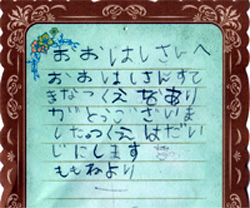 おおはしさんへ
おおはしさんすて
きなつくえをあり
がとうございま
したつくえはだい
じにします
ももねより